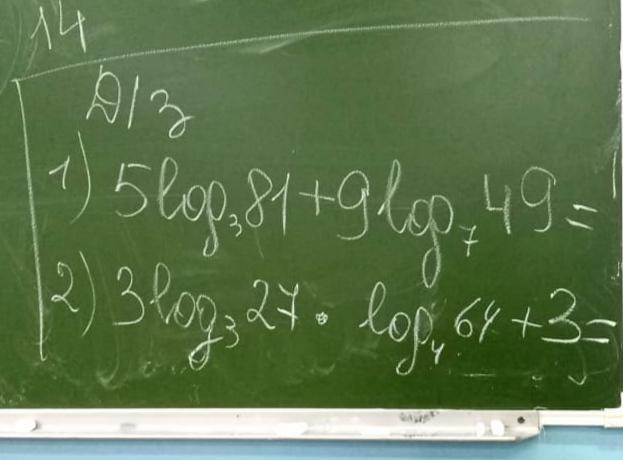 14
Д/з
1) 5log₃81+9log₇49=
2) 3log₃27·log₄64+3=